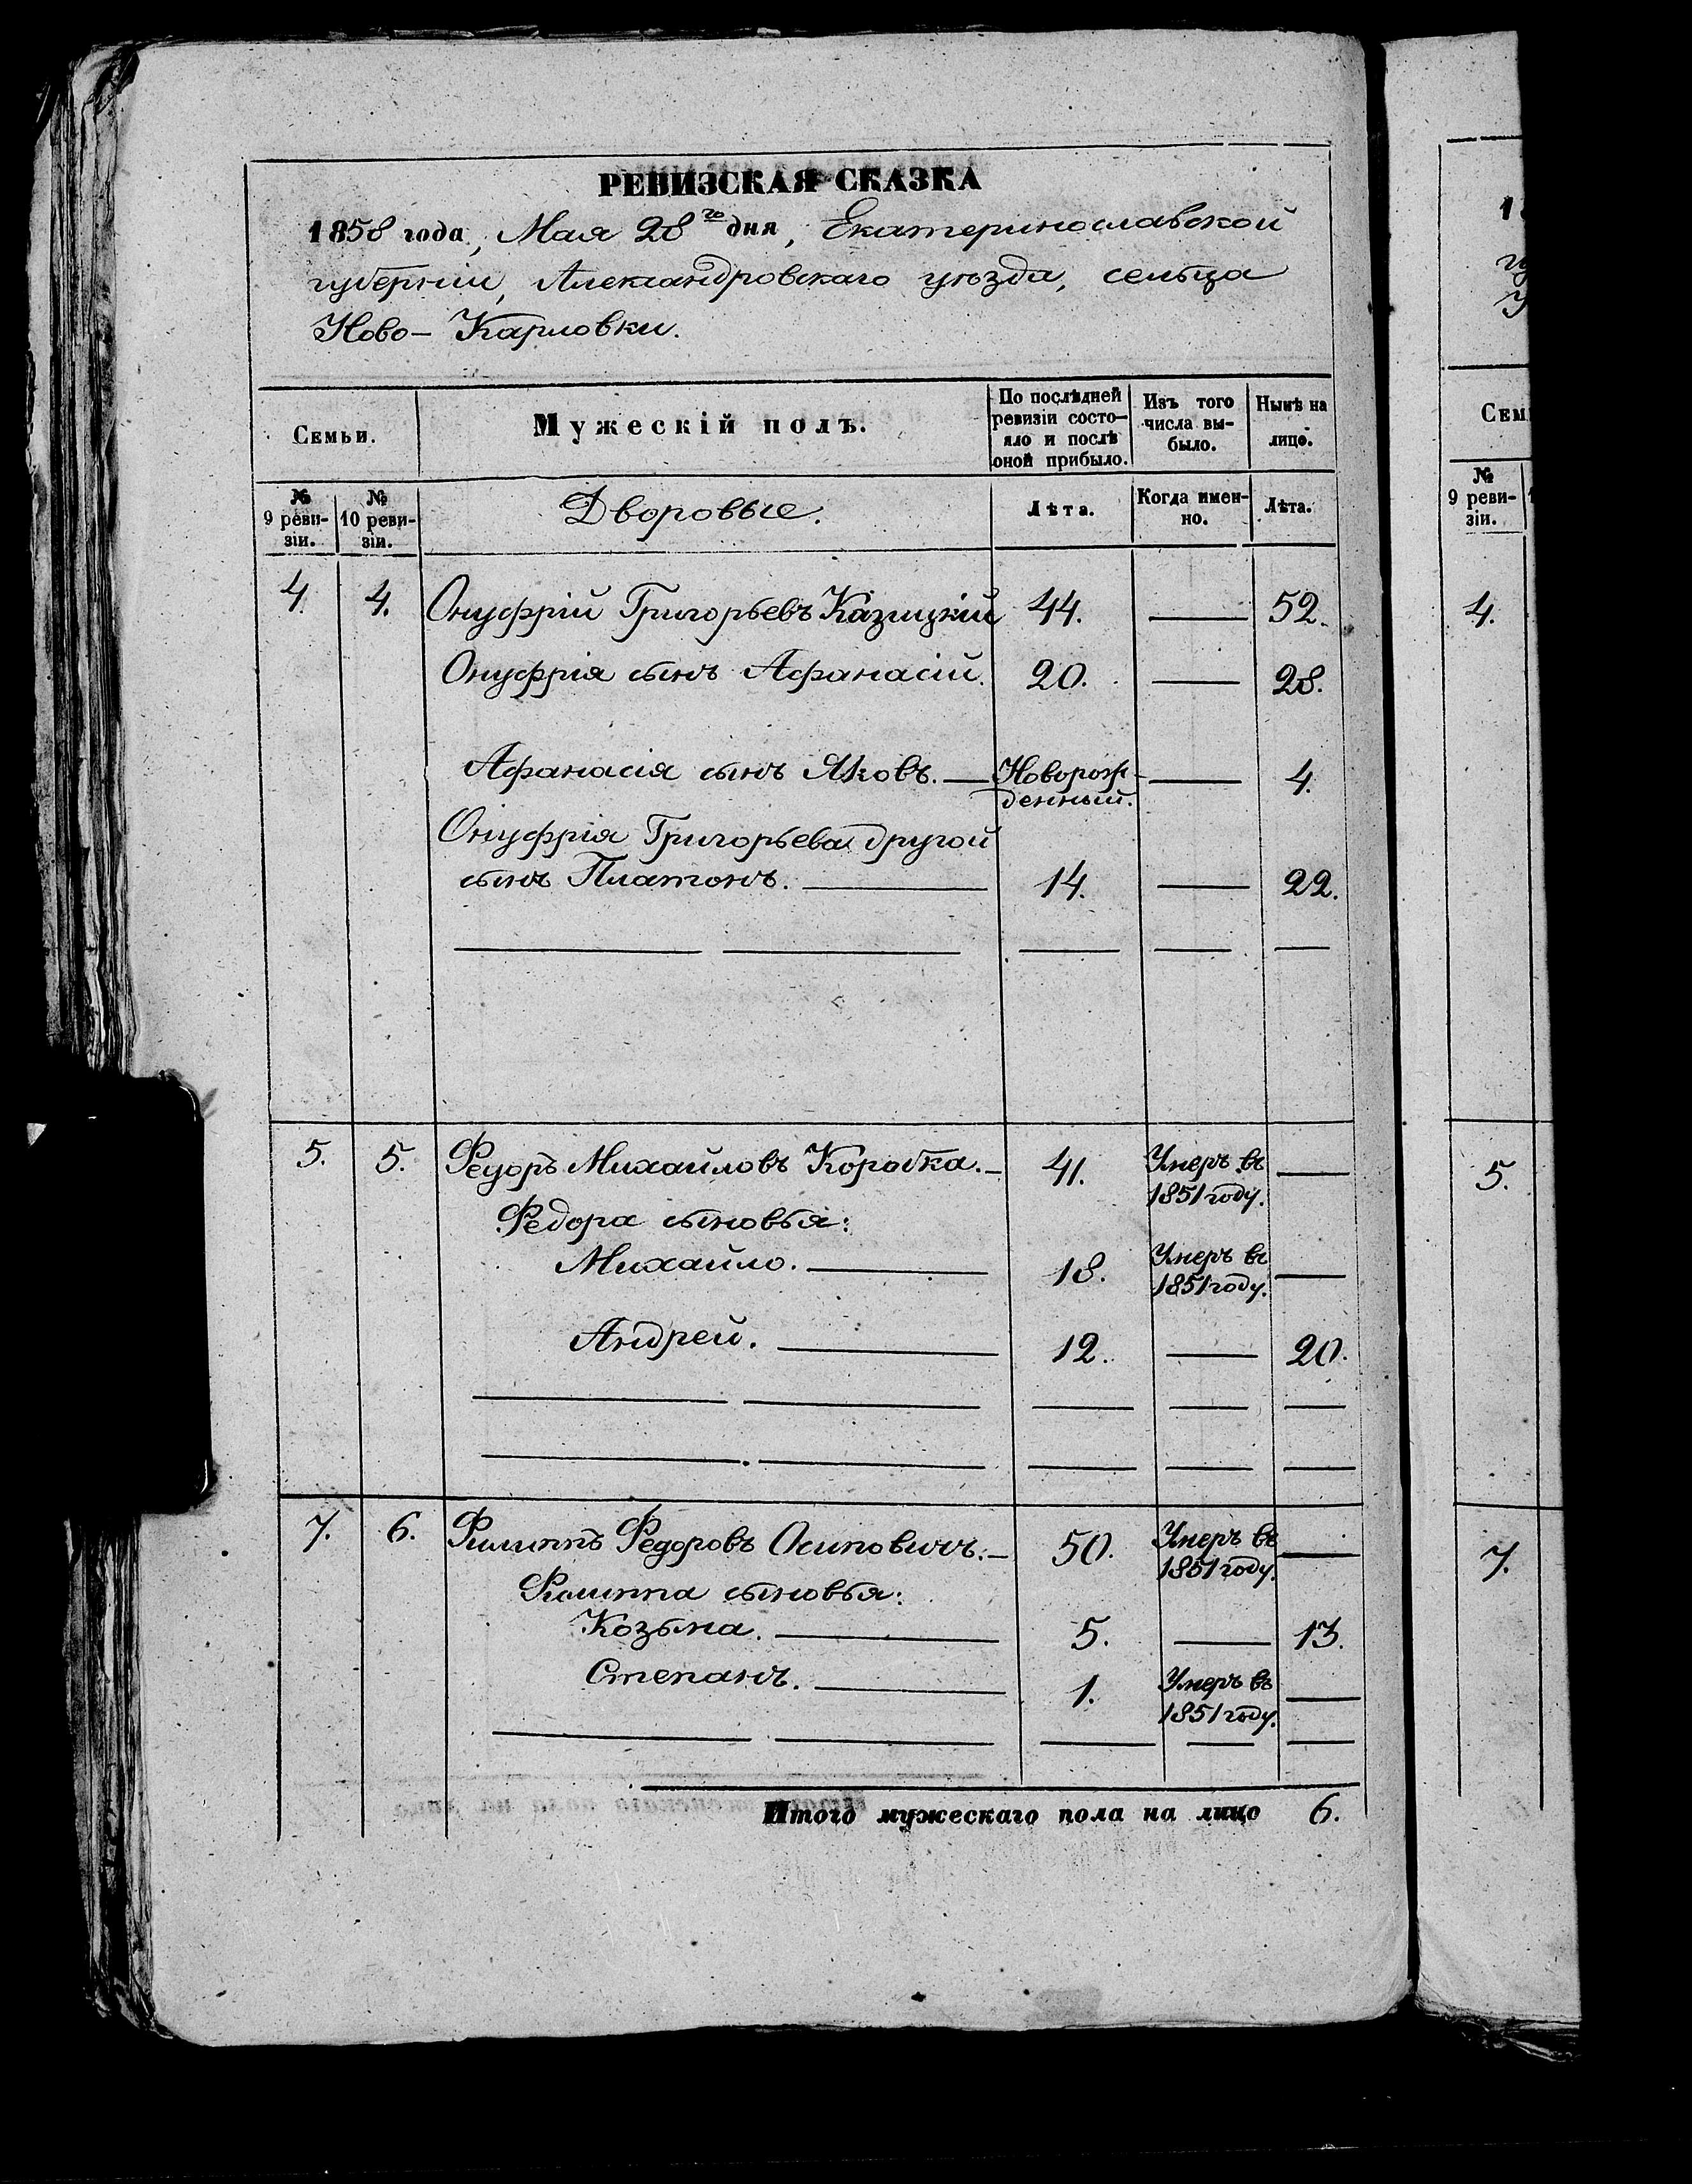 РЕВИЗСКАЯ СКАЗКА
1858 года, Мая 28го дня, Екатеринославской
губернiи, Александровскаго уѣзда, сельца
Ново-Карловки.
Семьи.
Мужескiй полъ.
По послѣдней ревизiи состо-
яло и послѣ оной прибыло.
Изъ того числа вы-
было.
Нынѣ на лицо.
№ 9 реви-
зiи.
№ 10 реви-
зiи.
Дворовые.
Лѣта.
Когда имен-
но.
Лѣта.
4. 4. Онуфрiй Григорьевъ Казицкiй 44. — 52.
Онуфрiя сынъ Афанасiй. 20. — 28.
Афанасiя сынъ Яковъ. — Новорож-
денный. — 4.
Онуфрiя Григорьева другой
сынъ Платонъ. — 14. — 22.
5. 5. Федоръ Михайловъ Коробка. — 41. Умеръ въ
1851 году. —
Федора сыновья:
Михайло. — 18. Умеръ въ
1851 году. —
Андрей. — 12. — 20.
7. 6. Филиппъ Федоровъ Осиповичъ. — 50. Умеръ въ
1851 году. —
Филиппа сыновья:
Козьма. — 5. — 13.
Степанъ. — 1. Умеръ въ
1851 году. —
Итого мужескаго пола на лицо 6.
Сем
№
9 реви-
зiи.
4.
5.
7.